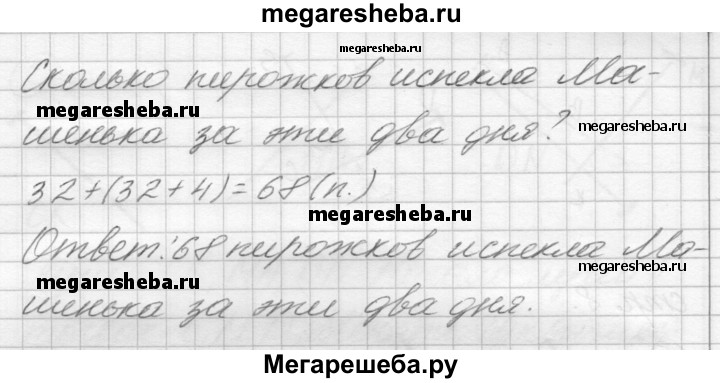 megaresheba.ru
megaresheba.ru
Сколько пирожков испекла Ма-
megaresheba.ru
шенька за эти два дня?
megaresheba.ru
32+(32+4)=68(п.)
megaresheba.ru
Ответ: 68 пирожков испекла Ма-
megaresheba.ru
megaresheba.ru
шенька за эти два дня.
Мегарешеба.ру